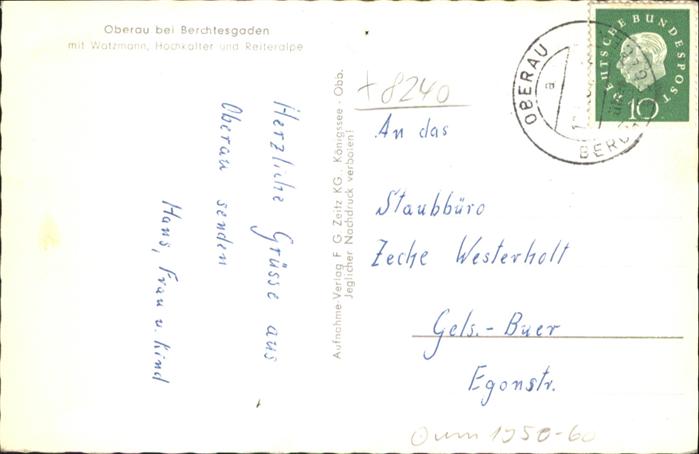 Oberau bei Berchtesgaden
mit Watzmann, Hochkalter und Reiteralpe
Herzliche Grüsse aus
Oberau senden
Hans, Frau u. Kind
Aufnahme-Verlag F. G. Zeitz KG., Königssee - Obb.
Jeglicher Nachdruck verboten!
+8240
OBERAU
a
BERC
DEUTSCHE BUNDESPOST
10
An das
Staubbüro
Zeche Westerholt
Gels.-Buer
Egonstr.
um 1950-60